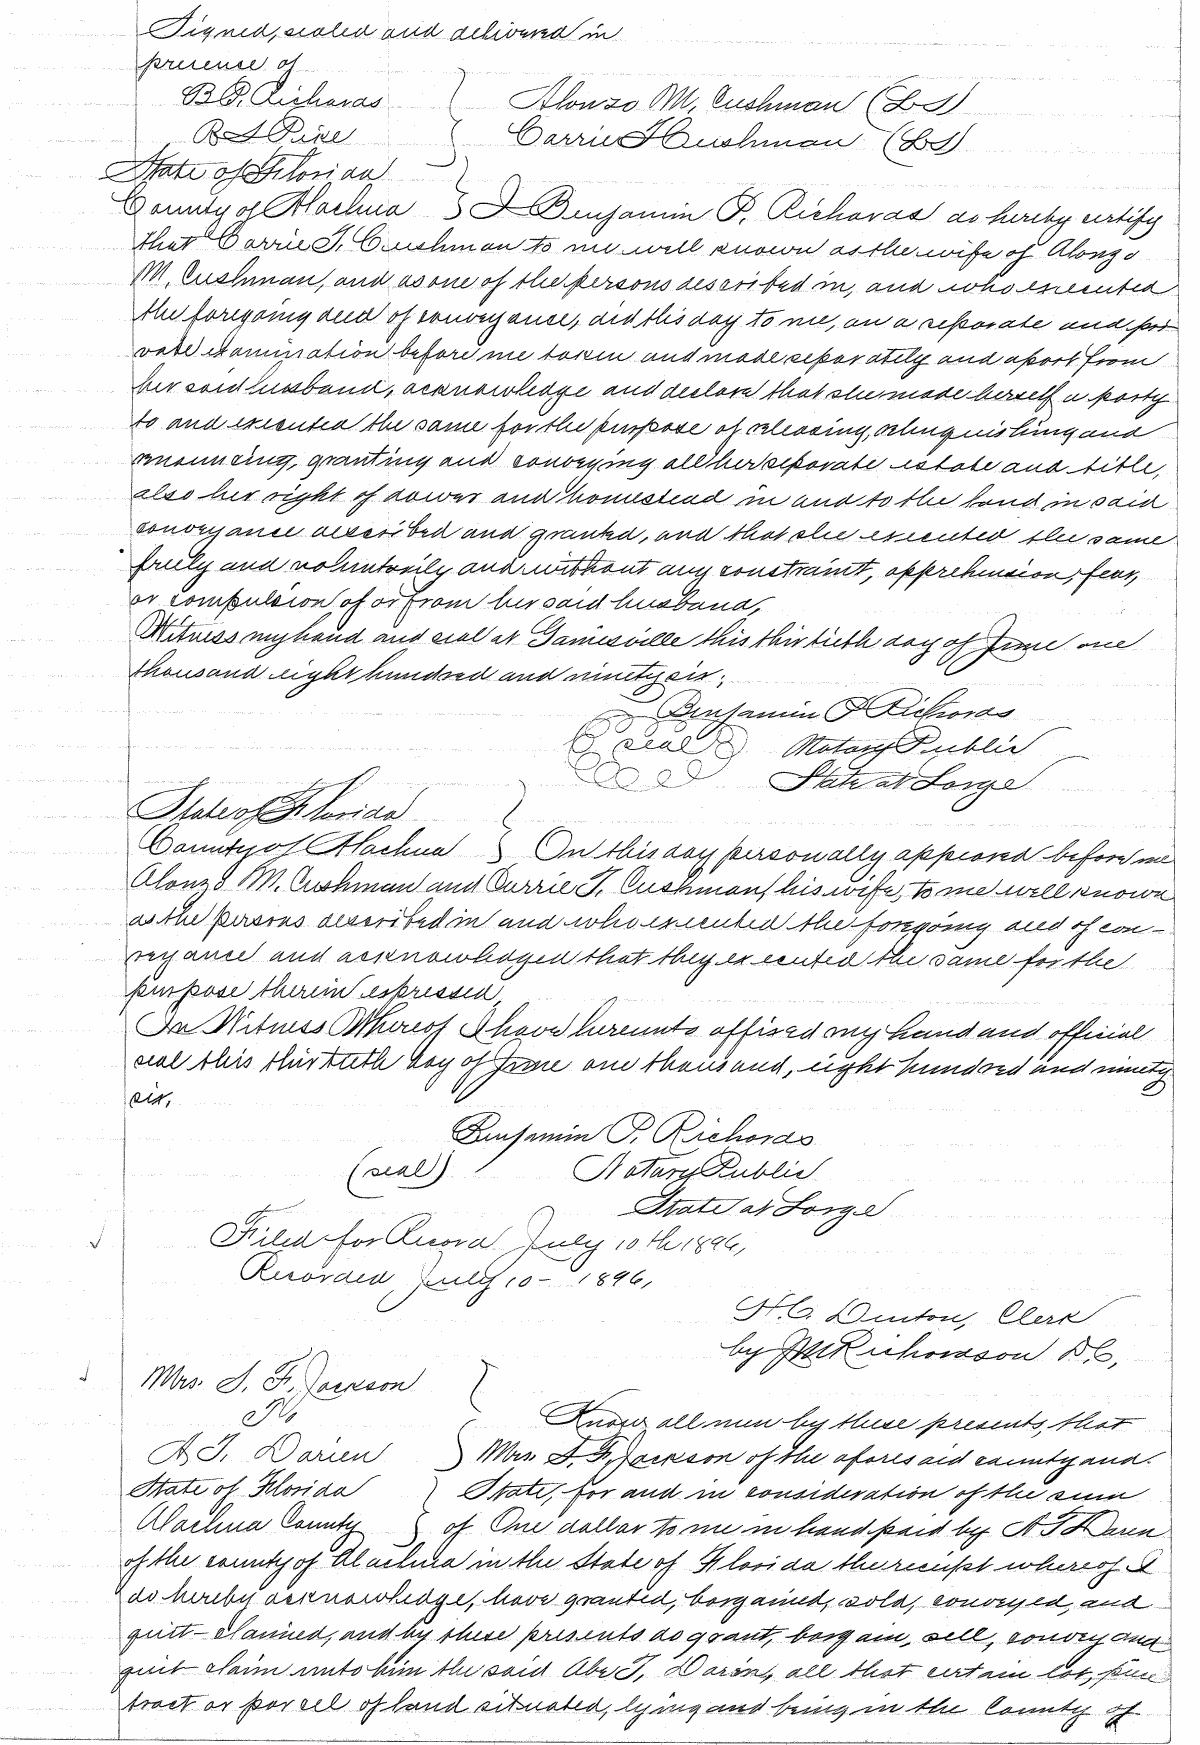 Signed, sealed and delivered in
presence of
B. P. Richards } Alonzo M. Cushman (LS)
Carrie T Cushman (LS)
State of Florida
County of Alachua } I Benjamin P. Richards do hereby certify
that Carrie T. Cushman to me well known as the wife of Alonzo
M. Cushman, and as one of the persons described in, and who executed
the foregoing deed of conveyance, did this day to me, on a separate and pri
vate examination before me taken and made separately and apart from
her said husband, acknowledge and declare that she made herself a party
to and executed the same for the purpose of releasing, relinquishing and
renouncing, granting and conveying all her separate estate and title,
also her right of dower and homestead in and to the land in said
conveyance described and granted, and that she executed the same
freely and voluntarily and without any constraint, apprehension, fear,
or compulsion of or from her said husband,
Witness my hand and seal at Gainesville this thirtieth day of June one
thousand eight hundred and ninety six.
Benjamin P Richards
(seal) Notary Public
State at Large
State of Florida
County of Alachua } On this day personally appeared before me
Alonzo M. Cushman and Carrie T. Cushman, his wife, to me well known
as the persons described in and who executed the foregoing deed of con-
veyance and acknowledged that they executed the same for the
purpose therein expressed,
In Witness Whereof I have hereunto affixed my hand and official
seal this thirtieth day of June one thousand, eight hundred and ninety
six.
Benjamin P. Richards
(seal) Notary Public
State at Large
Filed for Record July 10th 1896,
Recorded July 10- 1896,
H. C. Denton, Clerk
by Richardson D.C.,
Mrs. S. F. Jackson
To } Know all men by these presents, that
A. T. Darien } Mrs. S. F. Jackson of the aforesaid county and
State of Florida } State, for and in consideration of the sum
Alachua County } of One dollar to me in hand paid by A T
of the county of Alachua in the State of Florida the receipt whereof I
do hereby acknowledge, have granted, bargained, sold, conveyed, and
quit-claimed, and by these presents do grant, bargain, sell, convey and
quit claim unto him the said Abe T. all that certain lot,
tract or parcel of land situated, lying and being in the County of